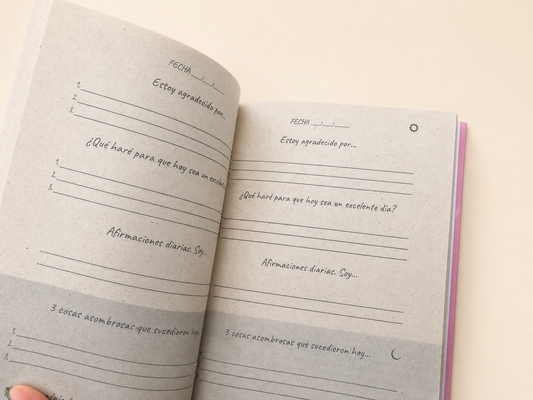 FECHA __/__/__
Estoy agradecido por...
1.
2.
3.
¿Qué haré para que hoy sea un excelente
1.
2.
3.
Afirmaciones diarias. Soy...
3 cosas asombrosas que sucedieron hoy...
1.
2.
3.
FECHA __/__/__
Estoy agradecido por...
¿Qué haré para que hoy sea un excelente día?
Afirmaciones diarias. Soy...
3 cosas asombrosas que sucedieron hoy...